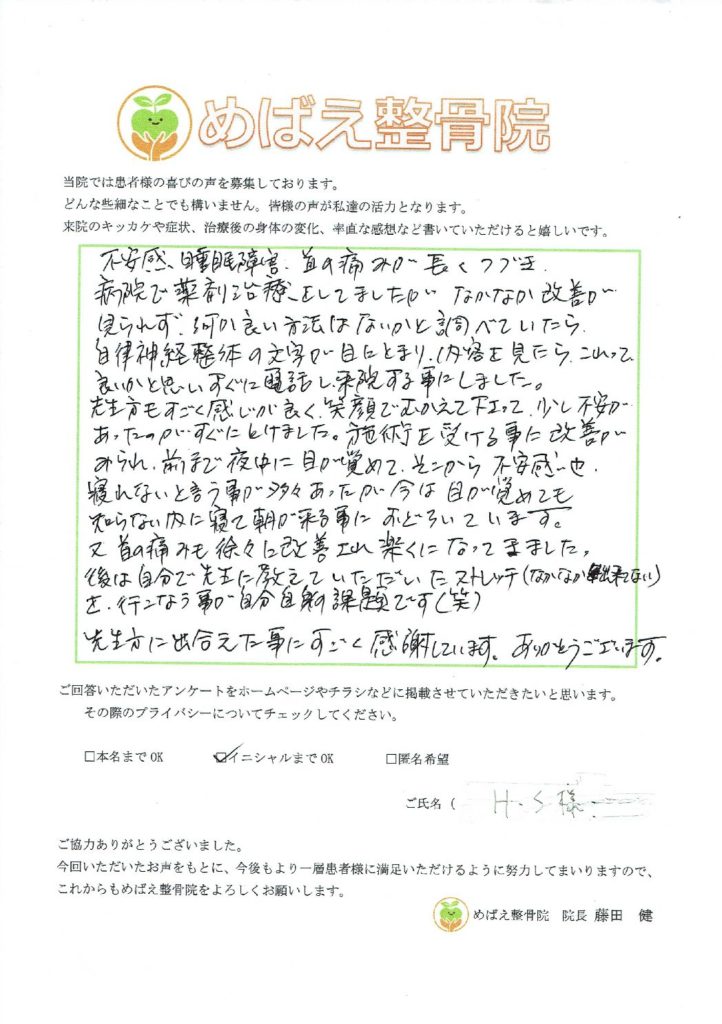 めばえ整骨院
当院では患者様の喜びの声を募集しております。
どんな些細なことでも構いません。皆様の声が私達の活力となります。
来院のキッカケや症状、治療後の身体の変化、率直な感想など書いていただけると嬉しいです。
不安感、睡眠障害、首の痛みが長くつづき
病院で薬剤治療をしてましたが なかなか改善が
見られず、何か良い方法はないかと調べていたら、
自律神経整体の文字が目にとまり、内容を見たら、これって
良いかと思いすぐに電話し来院する事にしました。
先生方もすごく感じが良く、笑顔でむかえて下さって、少し不安が
あったのがすぐにとけました。施術を受ける事に改善が
みられ、前まで夜中に目が覚めて、そこから不安感や
寝れないと言う事が多々あったが今は目が覚めても
知らない内に寝て朝が来る事におどろいています。
又首の痛みも徐々に改善され楽になってきました。
後は自分で先生に教えていただいたストレッチ(なかなか出来てない)
を、行こなう事が自分自身の課題です(笑)
先生方に出合えた事にすごく感謝しています。ありがとうございます。
ご回答いただいたアンケートをホームページやチラシなどに掲載させていただきたいと思います。
その際のプライバシーについてチェックしてください。
□本名までOK ☑イニシャルまでOK □匿名希望
ご氏名( H・S様
ご協力ありがとうございました。
今回いただいたお声をもとに、今後もより一層患者様に満足いただけるように努力してまいりますので、
これからもめばえ整骨院をよろしくお願いします。
めばえ整骨院 院長 藤田 健